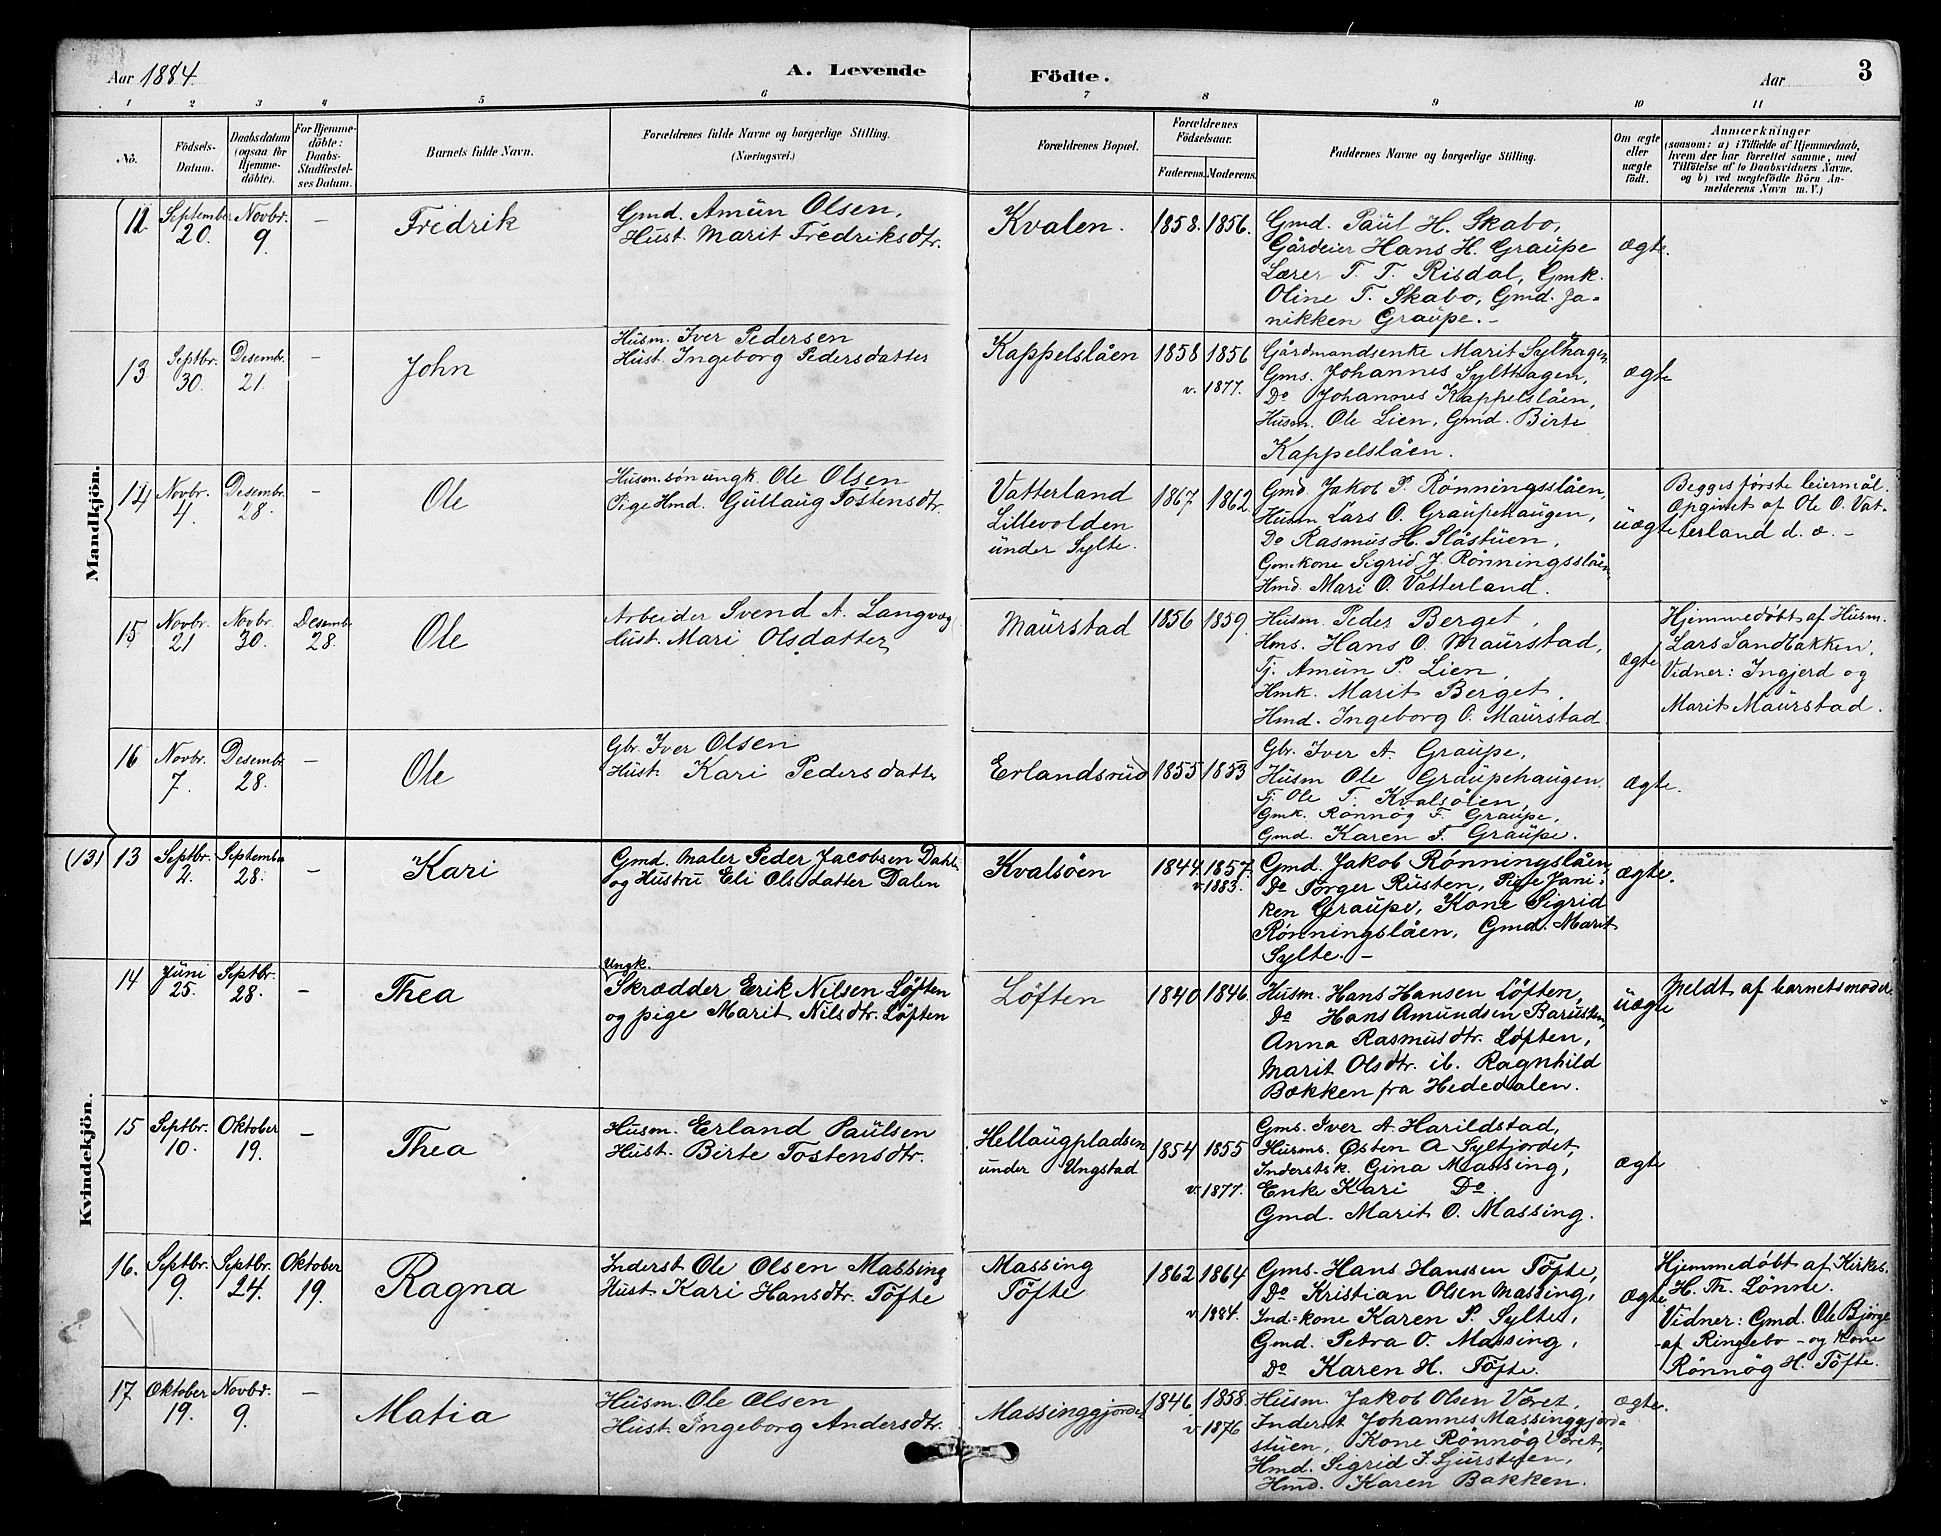 Aar 1884.
A. Levende
Födte.
Aar
3
1
2
3
4
5
6
7
8
9
10
11
No.
Födsels-
Datum.
Daabsdatum
(ogsaa for
Hjemme-
döbte).
For Hjemme-
döbte:
Daabs-
Stadfæstel-
ses Datum.
Barnets fulde Navn.
Forældrenes fulde Navne og borgerlige Stilling.
(Næringsvei.)
Forældrenes Bopæl.
Forældrenes
Födselsaar.
Faderens.
Moderens.
Faddernes Navne og borgerlige Stilling.
Om ægte
eller
uægte
födt.
Anmærkninger
(saasom: a) i Tilfælde af Hjemmedaab,
hvem der har forrettet samme, med
Tilföielse af to Daabsvidners Navne,
og b) ved uægtefödte Börn An-
melderens Navn m. V.)
Mandkjön.
12
September
20.
Novbr.
9
–
Fredrik
Gmd. Amün Olsen,
Hust. Marit Fredriksdtr.
Kvalen.
1858.
1856.
Gmd. Paül H. Skabo,
Gårdeier Hans H. Graüpe
Lærer T. T. Risdal, Gmk.
Oline T. Skabo, Gmd. Ja-
nikken Graüpe. –
ægte.
13
Septbr.
30.
Desembr.
21.
–
John
Husm. Iver Pedersen
Hüst. Ingeborg Pedersdatter
Kappelslåen
1858
1856
v. 1877.
Gårdmandsenke Marit Sylhagen
Gms. Johannes Sylthagen,
Do Johannes Kappelslåen,
Husm. Ole Lien, Gmd. Birte
Kappelslåen.
ægte
14
Novbr.
4.
Desembr.
28.
–
Ole
Husm.søn ungk. Ole Olsen
Pige Hmd. Güllaug Tostensdtr.
Vatterland
Lillevolden
ünder Sylte.
1867
1862
Gmd. Jakob P. Rønningsslåen,
Husm Lars O. Graüpehaugen,
Do Rasmus H. Slåstüen,
Gmekone Sigrid J. Rønningsslåen
Hmd. Mari O. Vatterland.
üægte
Begges første leiermål.
Opgivet af Ole O. Vat-
terland d. æ. –
15
Novbr.
21
Novbr.
30.
Desemb.
28.
Ole
Arbeider Svend A. Langvæg
Hust. Mari Olsdatter
Maürstad
1856
1859.
Husm. Peder Berget,
Hms. Hans O. Maürstad,
Tj. Amün P. Lien,
Hmk. Marit Berget.
Hmd. Ingeborg O. Maürstad
ægte
Hjemmedøbt af Husm.
Lars Sandbakken.
Vidner: Ingjerd og
Marit Maürstad.
16
Novbr.
7.
Desembr.
28.
–
Ole
Gbr. Iver Olsen
Hüst. Kari Pedersdatter
Erlandsrüd
1855
1853
Gbr. Iver A. Graüpe,
Husm Ole Graüpehaügen.
Tj. Ole T. Kvalsøien,
Gmk. Rønnög F. Graüpe,
Gmd. Karen F. Graüpe.
ægte.
Kvindekjön.
(13)
13
Septbr.
4.
September
28.
–
Kari
Gmd. Maler Peder Jacobsen Dahle
og Hustru Eli Olsdatter Dalen
Kvalsöen
1844.
1857.
v. 1883.
Gmd Jakob Rønningslåen,
Do Torger Rüsten, Pige Jani-
ken Graüpe, Kone Sigrid
Rønningslåen, Gmd. Marit
Sylte. –
ægte.
14
Jüni
25.
Septbr.
28.
–
Thea
Ungk.
Skrædder Erik Nilsen Löften
og pige Marit Nilsdtr. Löften
Löften
1840
1846.
Husm. Hans Hansen Löften,
Do Hans Amundsen Barusten,
Anna Rasmusdtr. Løften,
Marit Olsdtr. ib. Ragnhild
Bækken fra Hededalen.
üægte
Meldt af barnets moder
15
Septbr.
10.
Oktober
19.
–
Thea
Husm. Erland Paülsen
Hüst. Birte Tostensdtr.
Hellaügpladsen
under Ungstad
1854
1855
v. 1877.
Gms. Iver A Harildstad,
Husms. Østen A Syltjordet,
Inderstsk. Gina Massing,
Enke Kari Do
Gmd. Marit O. Massing.
ægte
16.
Septbr.
9.
Septbr.
24.
Oktober
19.
Ragna
Inderst Ole Olsen Massing
Hust. Kari Hansdtr. Töfte
Massing
Töfte
1862
1864
v. 1884.
Gms. Hans Hanssen Töfte,
Do Kristian Olsen Massing,
Ind.-kone Karen P. Sylte,
Gmd. Petra O. Massing,
Do Karen H. Töfte.
ægte
Hjemmedöbt af Kirkes.
H. Th. Lønne.
Vidner: Gmd. Ole Bjørge
af Ringebo – og Kone
Rønnög H. Töfte.
17
Oktober
19.
Novbr.
9.
–
Matia
Husm. Ole Olsen
Hüst. Ingeborg Andersdtr.
Massinggjordet
1846
1858
v 1876
Husm. Jakob Olsen Vöret,
Inderst Johannes Massinggjord-
stüen, Kone Rønnög Vöret,
Hmd. Sigrid I. Sjürsteen,
Hmd. Karen Bakken.
ægte.